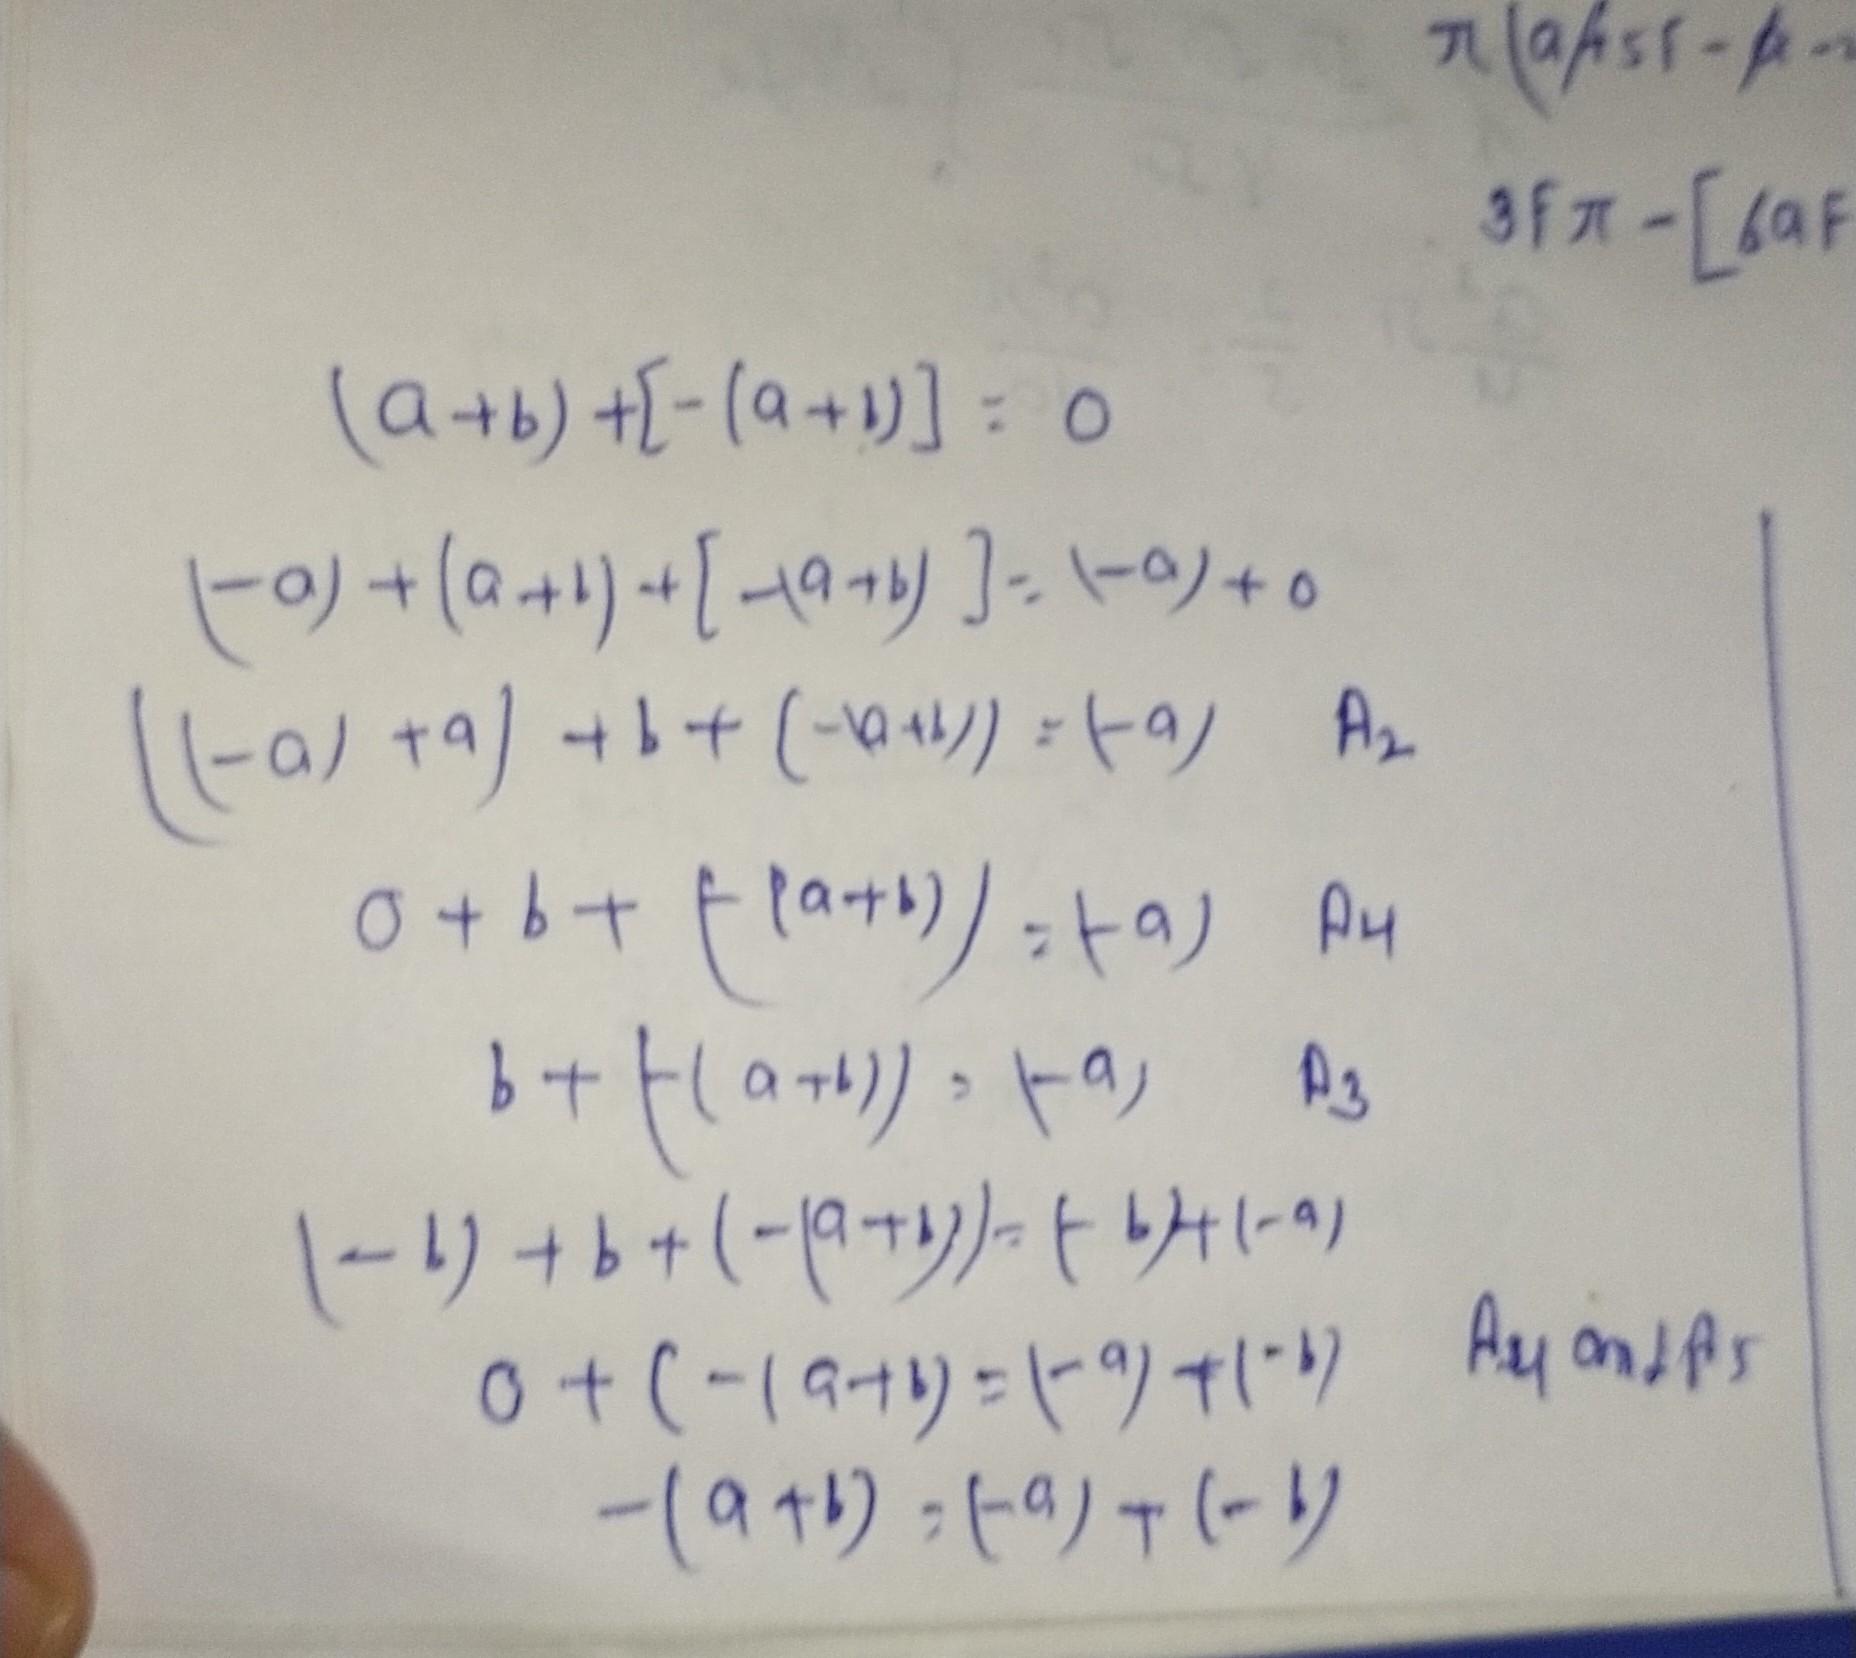 3Fπ - [6aF
(a+b) +[-(a+b)] = 0
(-a) + (a+b) + [-(a+b)] = (-a) + 0
((-a) +a) + b + (-(a+b)) = (-a) A2
0 + b + (-(a+b)) = (-a) A4
b + (-(a+b)) = (-a) A3
(-b) + b + (-(a+b)) = (-b)+(-a)
0 + (-(a+b) = (-a) +(-b) A4 and A5
-(a+b) = (-a) + (-b)